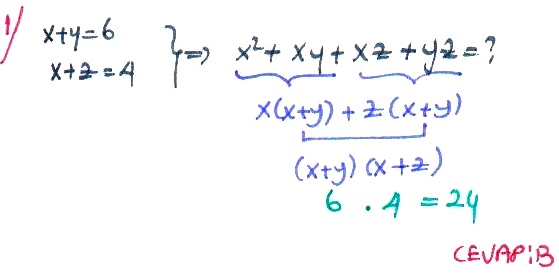 1/ x+y=6
x+z=4 } => x²+xy+xz+yz=?
x(x+y)+z(x+y)
(x+y)(x+z)
6 . 4 = 24
CEVAP:B